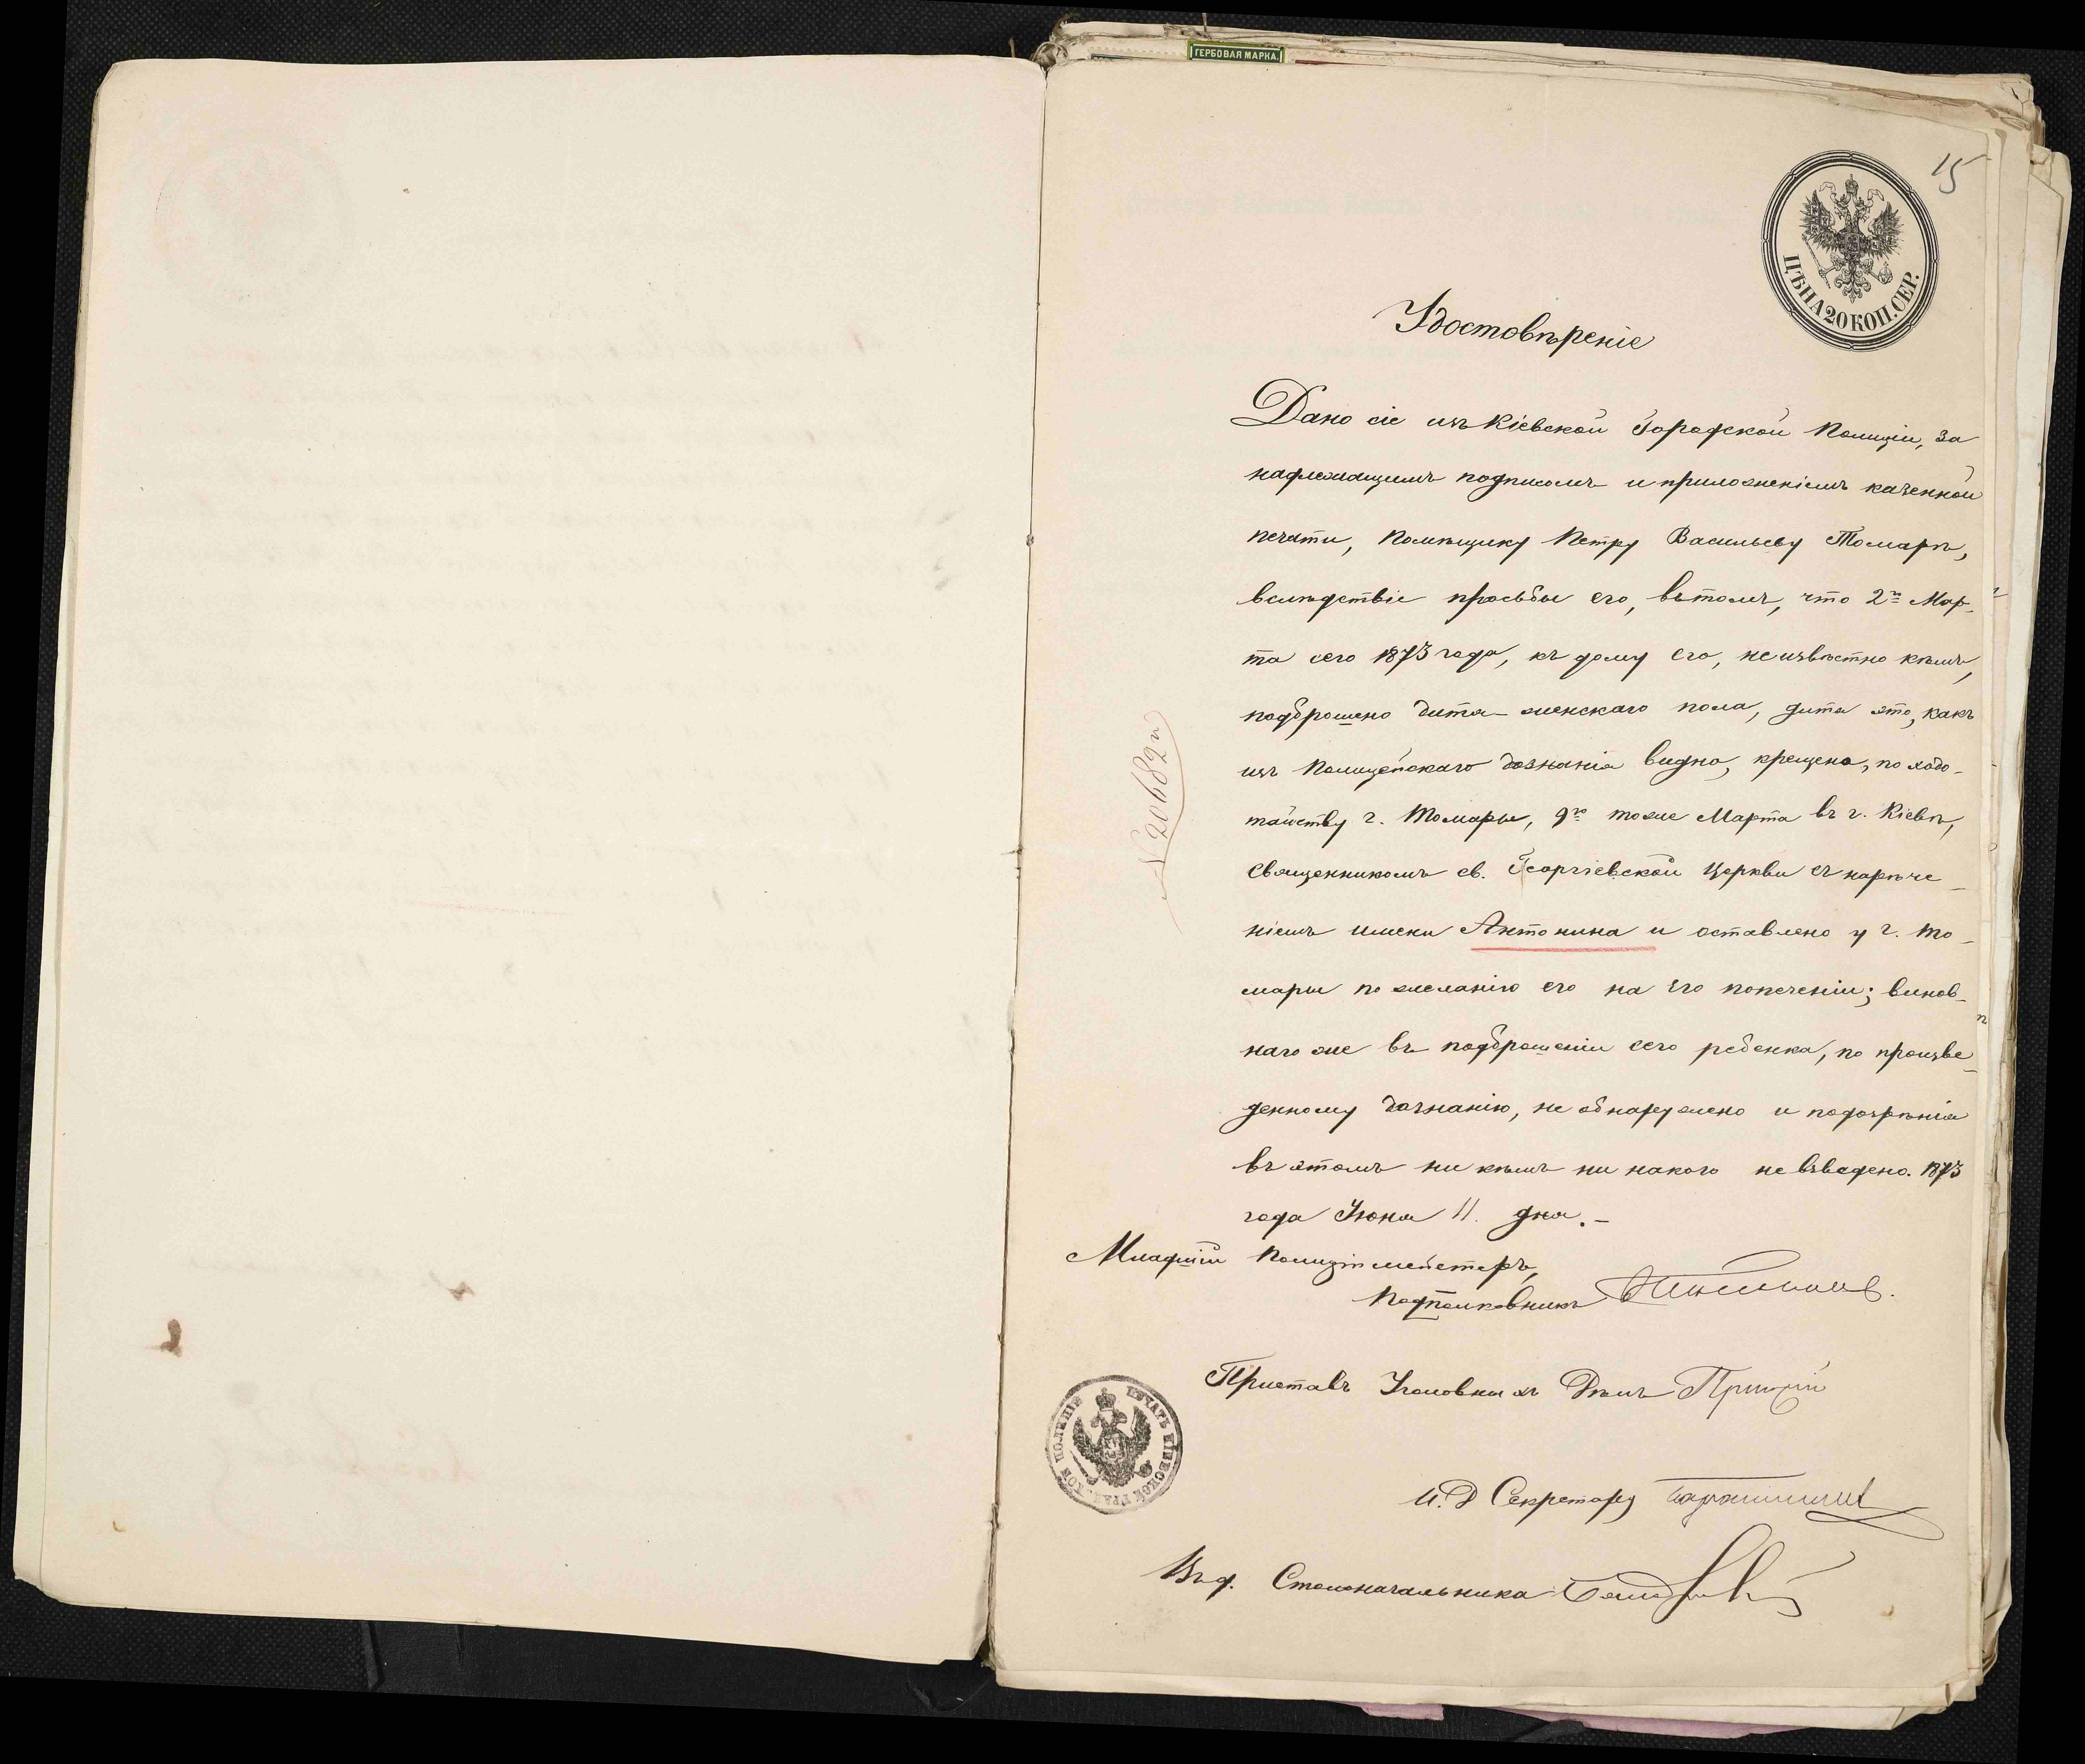 ГЕРБОВАЯ МАРКА.
15
ЦѢНА 20 КОП. СЕР.
Удостовѣреніе
Дано сіе изъ Кіевской Городской Полиціи, за
надлежащимъ подписомъ и приложеніемъ казенной
печати, Помѣщику Петру Васильеву Томарѣ,
вслѣдствіе просьбы его, въ томъ, что 2го Мар-
та сего 1873 года, къ дому его, неизвѣстно кѣмъ,
подброшено дитя женскаго пола, дитя это, какъ
изъ Полицейскаго дознанія видно, крещено, по хода-
тайству г. Томары, 9го тоже Марта въ г. Кіевѣ,
Священникомъ св. Георгіевской Церкви съ нарѣче-
ніемъ имени Антонина и оставлено у г. То-
мары по желанію его на его попеченіи; винов-
наго же въ подброшеніи сего ребенка, по произве-
денному дознанію, не обнаружено и подозрѣнія
въ этомъ ни кѣмъ ни накого не взведено. 1873
года Іюня 11 дня.-
Младшій Полиціймейстеръ,
Подполковникъ
Приставъ Уголовныхъ Дѣлъ
И. Д. Секретаря
Вмѣд. Столоначальника
ПЕЧАТЬ КІЕВСКОЙ ГРАДСКОЙ ПОЛИЦІИ
№ 20682